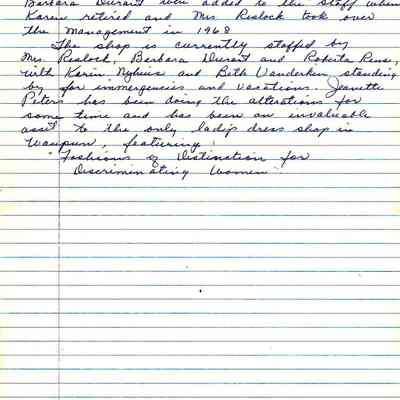 Barbara Durant were added to the staff when
Karen retired and Mrs Reslock took over
the Management in 1968
The shop is currently staffed by
Mrs. Reslock, Barbara Durant and Roberta Rens,
with Karin Nyhuis and Beth Vanderkin standing
by for immergencies and vacations. Jeanette
Peters has been doing the alterations for
some time and has been an invaluable
asset to the only ladies dress shop in
Waupun, featuring:
"Fashions of Distinction for
Discriminating Women"